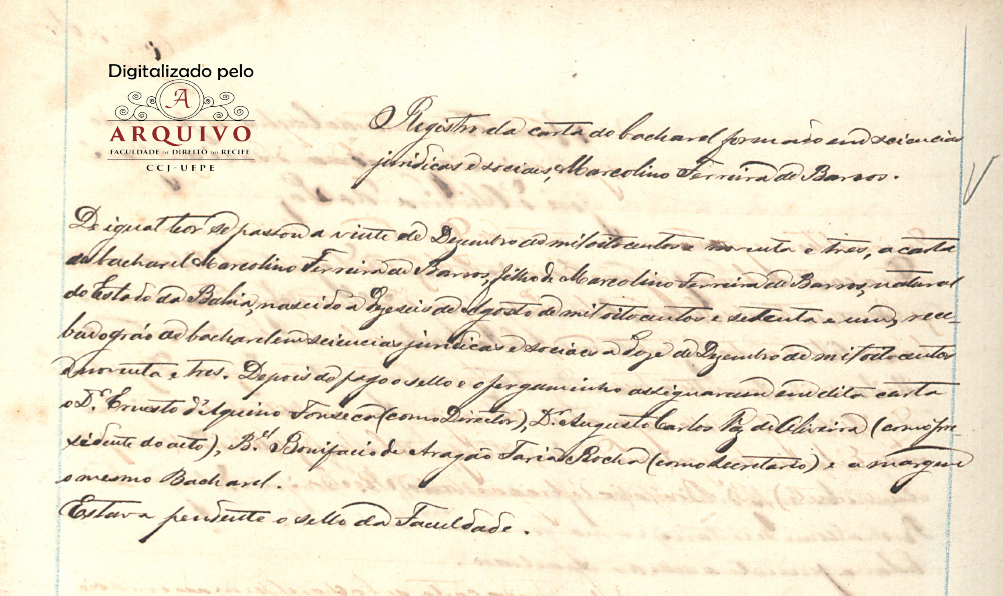 Digitalizado pelo
A
ARQUIVO
FACULDADE DE DIREITO DO RECIFE
CCJ-UFPE
Registro da carta do bacharel formado em sciencias
juridicas e sociaes, Marcolino Ferreira de Barros.
De igual teor se passou a vinte de Dezembro de mil oito centos e noventa e tres, a carta
do bacharel Marcolino Ferreira de Barros, filho de Marcolino Ferreira de Barros, natural
do Estado da Bahia, nascido á dezeseis de Agosto de mil oito centos e setenta e um, rece-
beu o gráo de bacharel em sciencias juridicas e sociaes a doze de Dezembro de mil oito centos
e noventa e tres. Depois de pago o sello e o pergaminho assignaram em dita carta
o Dr. Ernesto d'Aquino Fonseca (como Director), Dr. Augusto Carlos Vaz de Oliveira (como pre-
sidente do acto), Bel. Bonifacio de Aragão Faria Rocha (como secretario) e a margem
o mesmo Bacharel.
Estava pendente o sello da Faculdade.